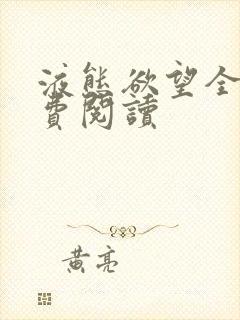 液態欲望全
費閱讀
黃亮